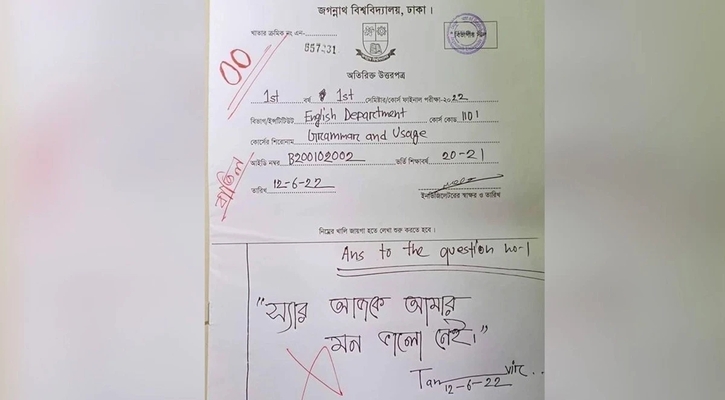 জগন্নাথ বিশ্ববিদ্যালয়, ঢাকা।
খাতার ক্রমিক নং এন-
857231
বিভাগীয় সিল
00
অতিরিক্ত উত্তরপত্র
1st বর্ষ 1st সেমিস্টার/কোর্স ফাইনাল পরীক্ষা-২০22
বিভাগ/ইন্সটিটিউট English Department কোর্স কোড 1101
কোর্সের শিরোনাম Grammar and Usage
আইডি নম্বর B200102002 ভর্তি শিক্ষাবর্ষ 20-21
বাতিল
তারিখ 12-6-22
ইনভিজিলেটরের স্বাক্ষর ও তারিখ
নিম্নের খালি জায়গা হতে লেখা শুরু করতে হবে।
Ans to the question no-1
"স্যার আজকে আমার
মন ভালো নেই।"
Tan virc..
12-6-22